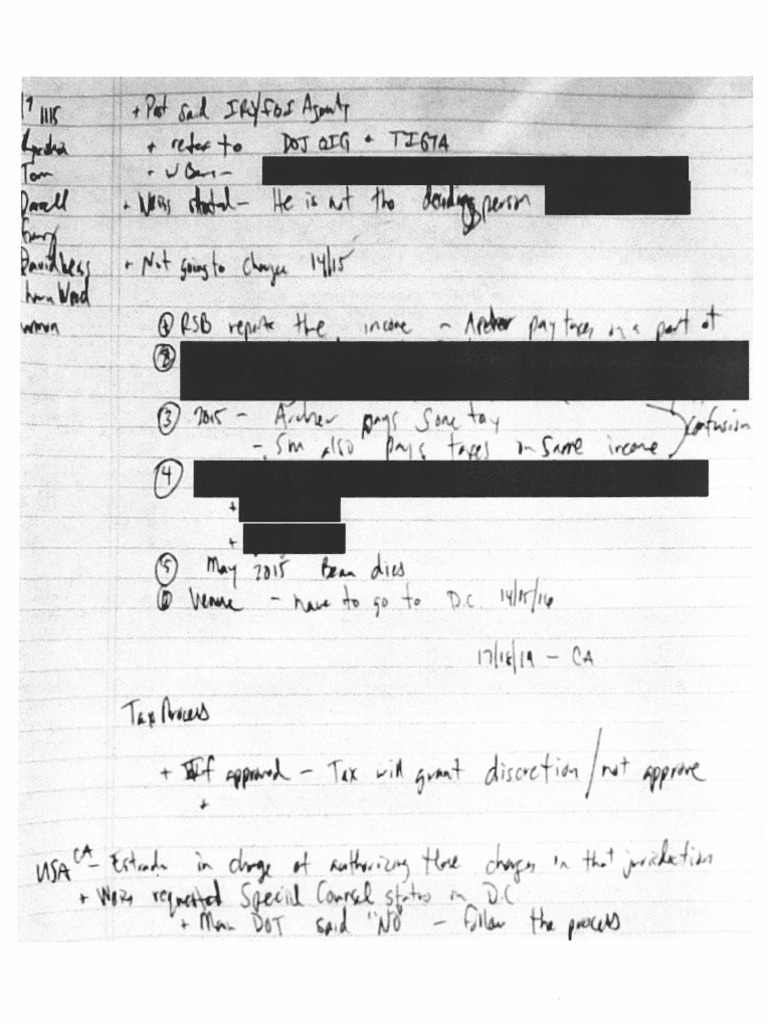 1115 + Post said IRS/FBI Agents
+ refer to DOJ OIG + TIGTA
Tom
Darrell + Weiss stated - He is not the deciding person
Gary
David + Not going to charge 14/15
① RSB reports the income - Archer pay taxes on a part of
②
③ 2015 - Archer pays some tax
- Sm also pays taxes on same income confusion
④
+
+
⑤ May 2015 Beau dies
⑥ Venue - have to go to D.C. 14/15/16
17/18/19 - CA
Tax Process
+ If approved - Tax will grant discretion / not approve
+
USA CA - Estrada in charge of authorizing those charges in that jurisdiction
+ Weiss requested Special Counsel status in D.C
+ Main DOJ said "No" - follow the process